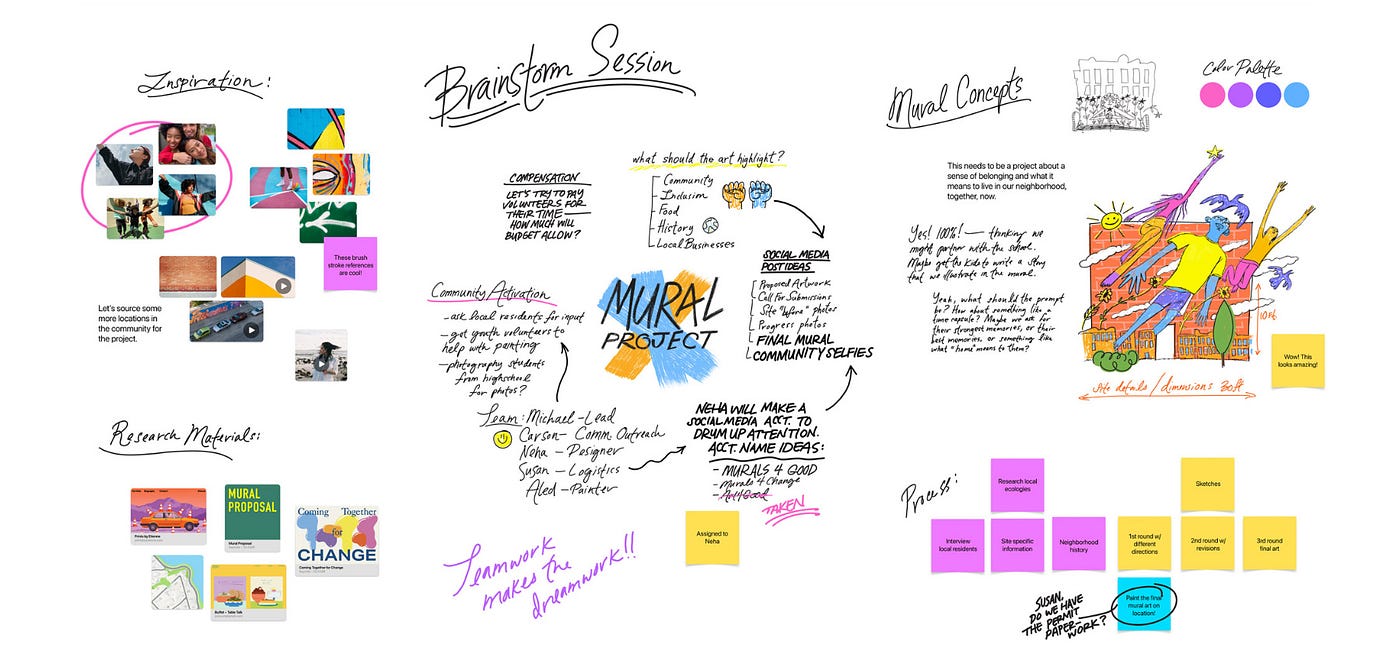 Inspiration:
These brush
stroke references
are cool!
Let's source some
more locations in
the community for
the project.
Research Materials:
MURAL
PROPOSAL
Mural Proposal
Coming Together
for
CHANGE
Coming Together for Change
Buffet – Table Talk
Brainstorm Session
COMPENSATION
LET'S TRY TO PAY
VOLUNTEERS FOR
THEIR TIME —
HOW MUCH WILL
BUDGET ALLOW?
what should the art highlight?
Community
Inclusion
Food
History
Local Businesses
SOCIAL MEDIA
POST IDEAS
Proposed Artwork
Call For Submissions
Site "before" photos
Progress photos
FINAL MURAL
COMMUNITY SELFIES
Community Activation
- ask local residents for input
- get youth volunteers to
help with painting
- photography students
from highschool
for photos?
MURAL
PROJECT
Team: Michael - Lead
Carson - Comm. Outreach
Neha - Designer
Susan - Logistics
Aled - Painter
NEHA WILL MAKE A
SOCIAL MEDIA ACCT. TO
DRUM UP ATTENTION.
ACCT. NAME IDEAS:
- MURALS 4 GOOD
- Murals 4 Change
- Art4Good
TAKEN
Assigned to
Neha
Teamwork
makes the
dreamwork!!
Mural Concepts
Color Palette
This needs to be a project about a
sense of belonging and what it
means to live in our neighborhood,
together, now.
Yes! 100%! — thinking we
might partner with the school.
Maybe get the kids to write a story
that we illustrate in the mural.
Yeah, what should the prompt
be? How about something like a
time capsule? Maybe we ask for
their strongest memories, or their
best memories, or something like
what "home" means to them?
10 ft
Site details / dimensions 30ft
Wow! This
looks amazing!
Process:
Research local
ecologies
Sketches
Interview
local residents
Site specific
information
Neighborhood
history
1st round w/
different
directions
2nd round w/
revisions
3rd round
final art
Paint the final
mural art on
location!
SUSAN,
DO WE HAVE
THE PERMIT
PAPER-
WORK?